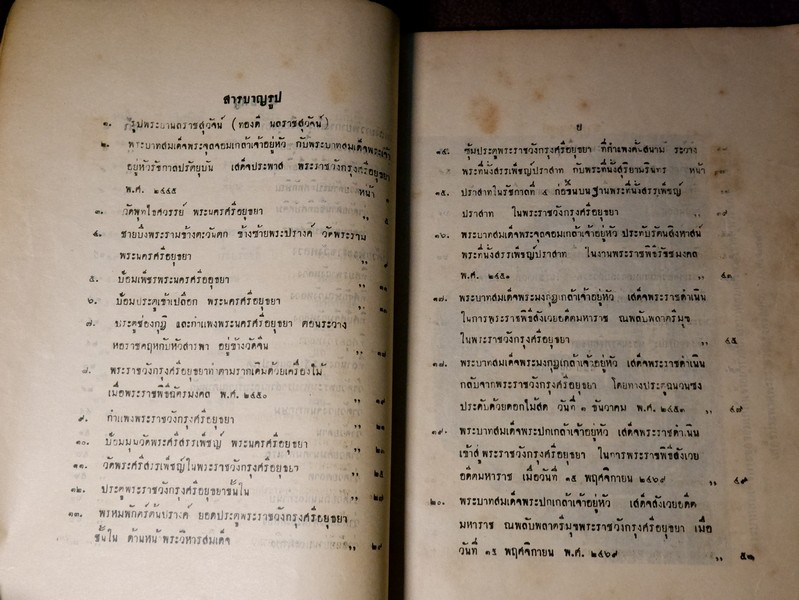 สารบาญรูป
๑. รูปพระยาโบราณราชธานินทร์
๒. พระบาทสมเด็จพระจุลจอมเกล้าเจ้าอยู่หัว กับพระบาทสมเด็จพระเจ้า
อยู่หัวรัชกาลปรัตยุบัน เสด็จประพาส พระราชวังกรุงศรีอยุธยา
พ.ศ. ๒๔๔๕ หน้า
๓. วัดพุทไธศวรรย์ พระนครศรีอยุธยา ,,
๔. ชายบึงพระรามข้างตะวันตก ข้างซ้ายพระปรางค์ วัดพระราม
พระนครศรีอยุธยา ,,
๕. ป้อมเพ็ชรพระนครศรีอยุธยา ,,
๖. ป้อมประตูเข้าเปลือก พระนครศรีอยุธยา ,,
๗. ประตูช่องกุฏิ และกำแพงพระนครศรีอยุธยา ตอนระวาง
หอราชคฤหกับหัวสารพา อยู่ข้างวัดจีน ,,
๘. พระราชวังกรุงศรีอยุธยาทำตามรากเดิมด้วยเครื่องไม้
เมื่อพระราชพิธีฉัตรมงคล พ.ศ. ๒๔๕๐ ,,
๙. กำแพงพระราชวังกรุงศรีอยุธยา ,,
๑๐. ป้อมมุมวัดพระศรีสรรเพ็ชญ์ พระนครศรีอยุธยา ,,
๑๑. วัดพระศรีสรรเพ็ชญ์ในพระราชวังกรุงศรีอยุธยา ,, ๒๕
๑๒. ประตูพระราชวังกรุงศรีอยุธยาชั้นใน ,, ๒๗
๑๓. พรหมพักตร์ต้นปรางค์ ยอดประตูพระราชวังกรุงศรีอยุธยา
ชั้นใน ด้านหน้าพระวิหารสมเด็จ ,, ๒๙
ข
๑๔. ซุ้มประตูพระราชวังกรุงศรีอยุธยา ที่กำแพงคั่นสนาม ระวาง
พระที่นั่งสรรเพ็ชญ์ปราสาท กับพระที่นั่งสุริยามรินทร หน้า
๑๕. ปราสาทในรัชกาลที่ ๔ ก่อขึ้นบนฐานพระที่นั่งสรรเพ็ชญ์
ปราสาท ในพระราชวังกรุงศรีอยุธยา ,, ๓๙
๑๖. พระบาทสมเด็จพระจุลจอมเกล้าเจ้าอยู่หัว ประทับรัตนสิงหาสน์
พระที่นั่งสรรเพ็ชญ์ปราสาท ในงานพระราชพิธีรัชมงคล
พ.ศ. ๒๔๕๑ ,, ๔๑
๑๗. พระบาทสมเด็จพระมงกุฎเกล้าเจ้าอยู่หัว เสด็จพระราชดำเนิน
ในการพระราชพิธีสังเวยอดีตมหาราช ณพลับพลาตรีมุข
ในพระราชวังกรุงศรีอยุธยา ,, ๔๕
๑๘. พระบาทสมเด็จพระมงกุฎเกล้าเจ้าอยู่หัว เสด็จพระราชดำเนิน
กลับจากพระราชวังกรุงศรีอยุธยา โดยทางประตูฉนวนซึ่ง
ประดับด้วยดอกไม้สด วันที่ ๑ ธันวาคม พ.ศ. ๒๔๕๓ ,, ๔๗
๑๙. พระบาทสมเด็จพระปกเกล้าเจ้าอยู่หัว เสด็จพระราชดำเนิน
เข้าสู่พระราชวังกรุงศรีอยุธยา ในการพระราชพิธีสังเวย
อดีตมหาราช เมื่อวันที่ ๑๕ พฤศจิกายน ๒๔๖๙ ,, ๔๙
๒๐. พระบาทสมเด็จพระปกเกล้าเจ้าอยู่หัว เสด็จสังเวยอดีต
มหาราช ณพลับพลาตรีมุขพระราชวังกรุงศรีอยุธยา เมื่อ
วันที่ ๑๕ พฤศจิกายน พ.ศ. ๒๔๖๙ ,, ๕๑